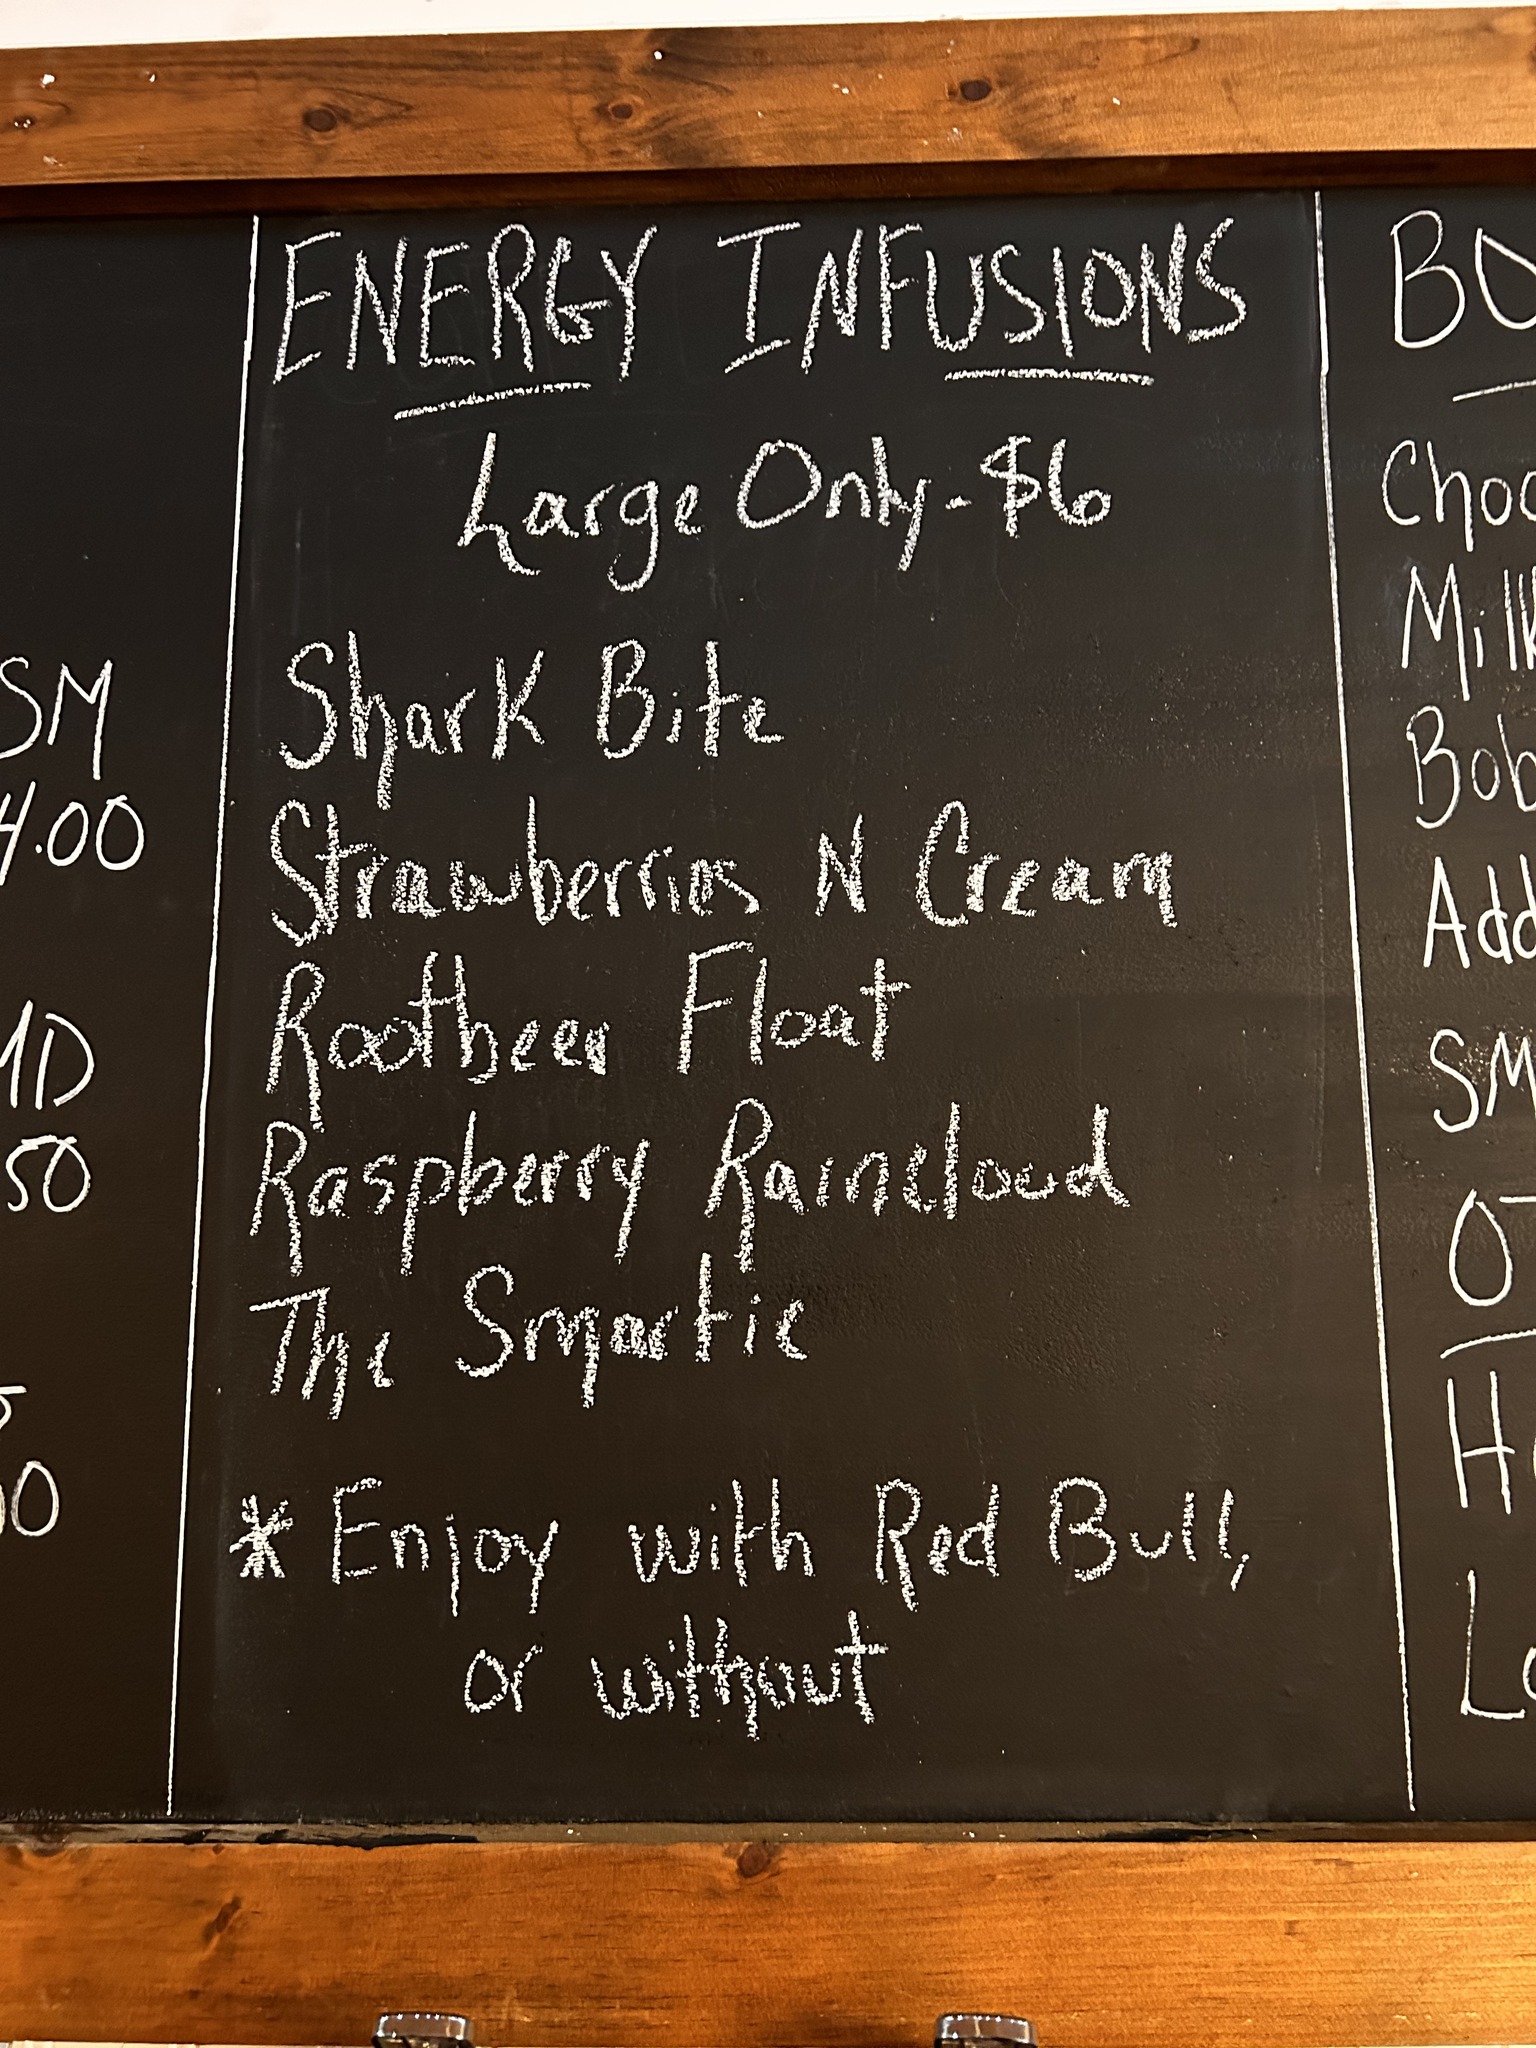 ENERGY INFUSIONS
Large Only - $6
Shark Bite
Strawberries N Cream
Rootbeer Float
Raspberry Raincloud
The Smartie
* Enjoy with Red Bull,
or without
SM
4.00
MD
50
Milk
Add
SM